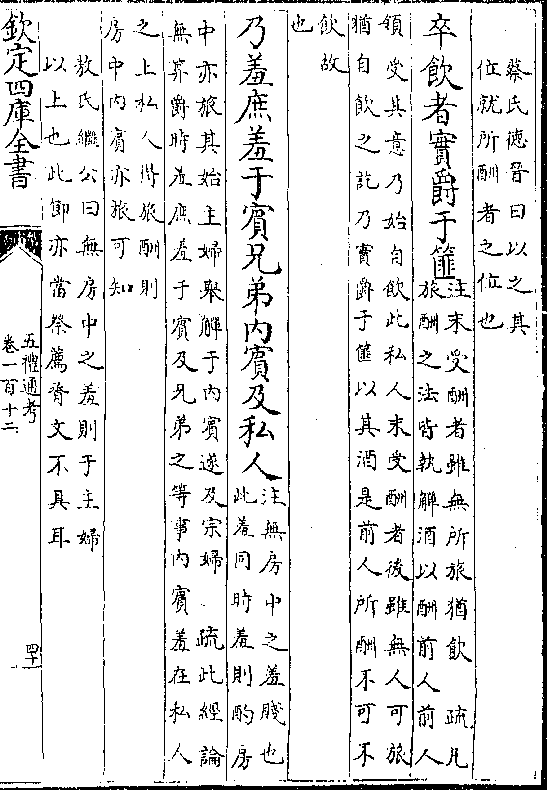 蔡氏德晉曰以之其
位就所酬者之位也
卒飲者實爵于篚
注末受酬者雖無所旅猶飲　疏凡
旅酬之法皆執觶酒以酬前人前人
領受其意乃始自飲此私人末受酬者後雖無人可旅
猶自飲之訖乃實爵于篚以其酒是前人所酬不可不
飲故
也
乃羞庶羞于賓兄弟內賓及私人
注無房中之羞賤也
此羞同時羞則酌房
中亦旅其始主婦舉觶于內賓遂及宗婦　疏此經論
無筭爵時羞庶羞于賓及兄弟之等事內賓羞在私人
之上私人得旅酬則
房中內賓亦旅可知
敖氏繼公曰無房中之羞則于主婦
以上也此節亦當祭薦脀文不具耳
欽定四庫全書
五禮通考
卷一百十二
四十